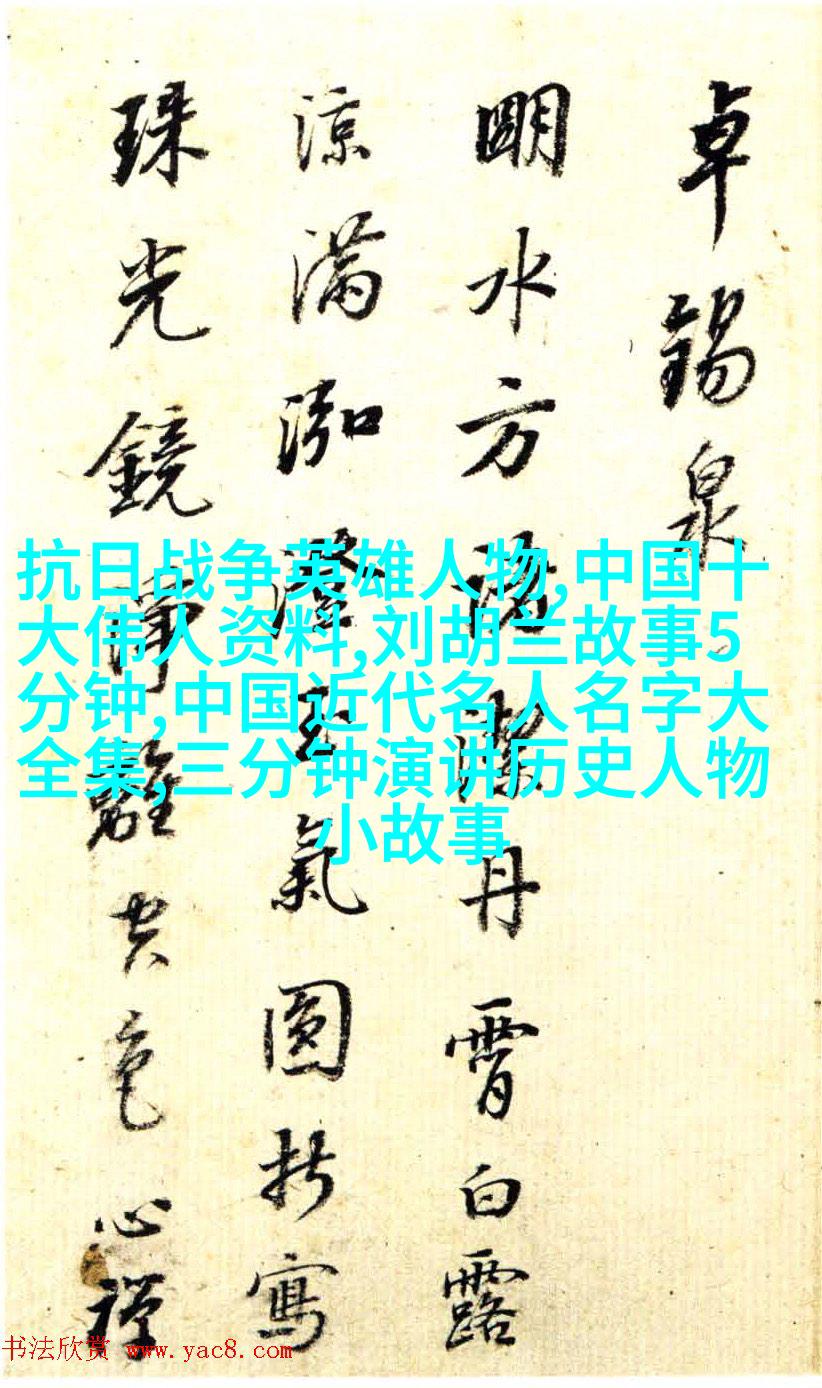 卓錫泉
明水方諸潔丹霄白露
涼滿泓澄玉氣圓折寫
珠光鏡淨離空色心禪
抗日战争英雄人物,中国十
大伟人资料,刘胡兰故事5
分钟,中国近代名人名字大
全集,三分钟演讲历史人物
小故事
书法欣赏 www.yac8.com